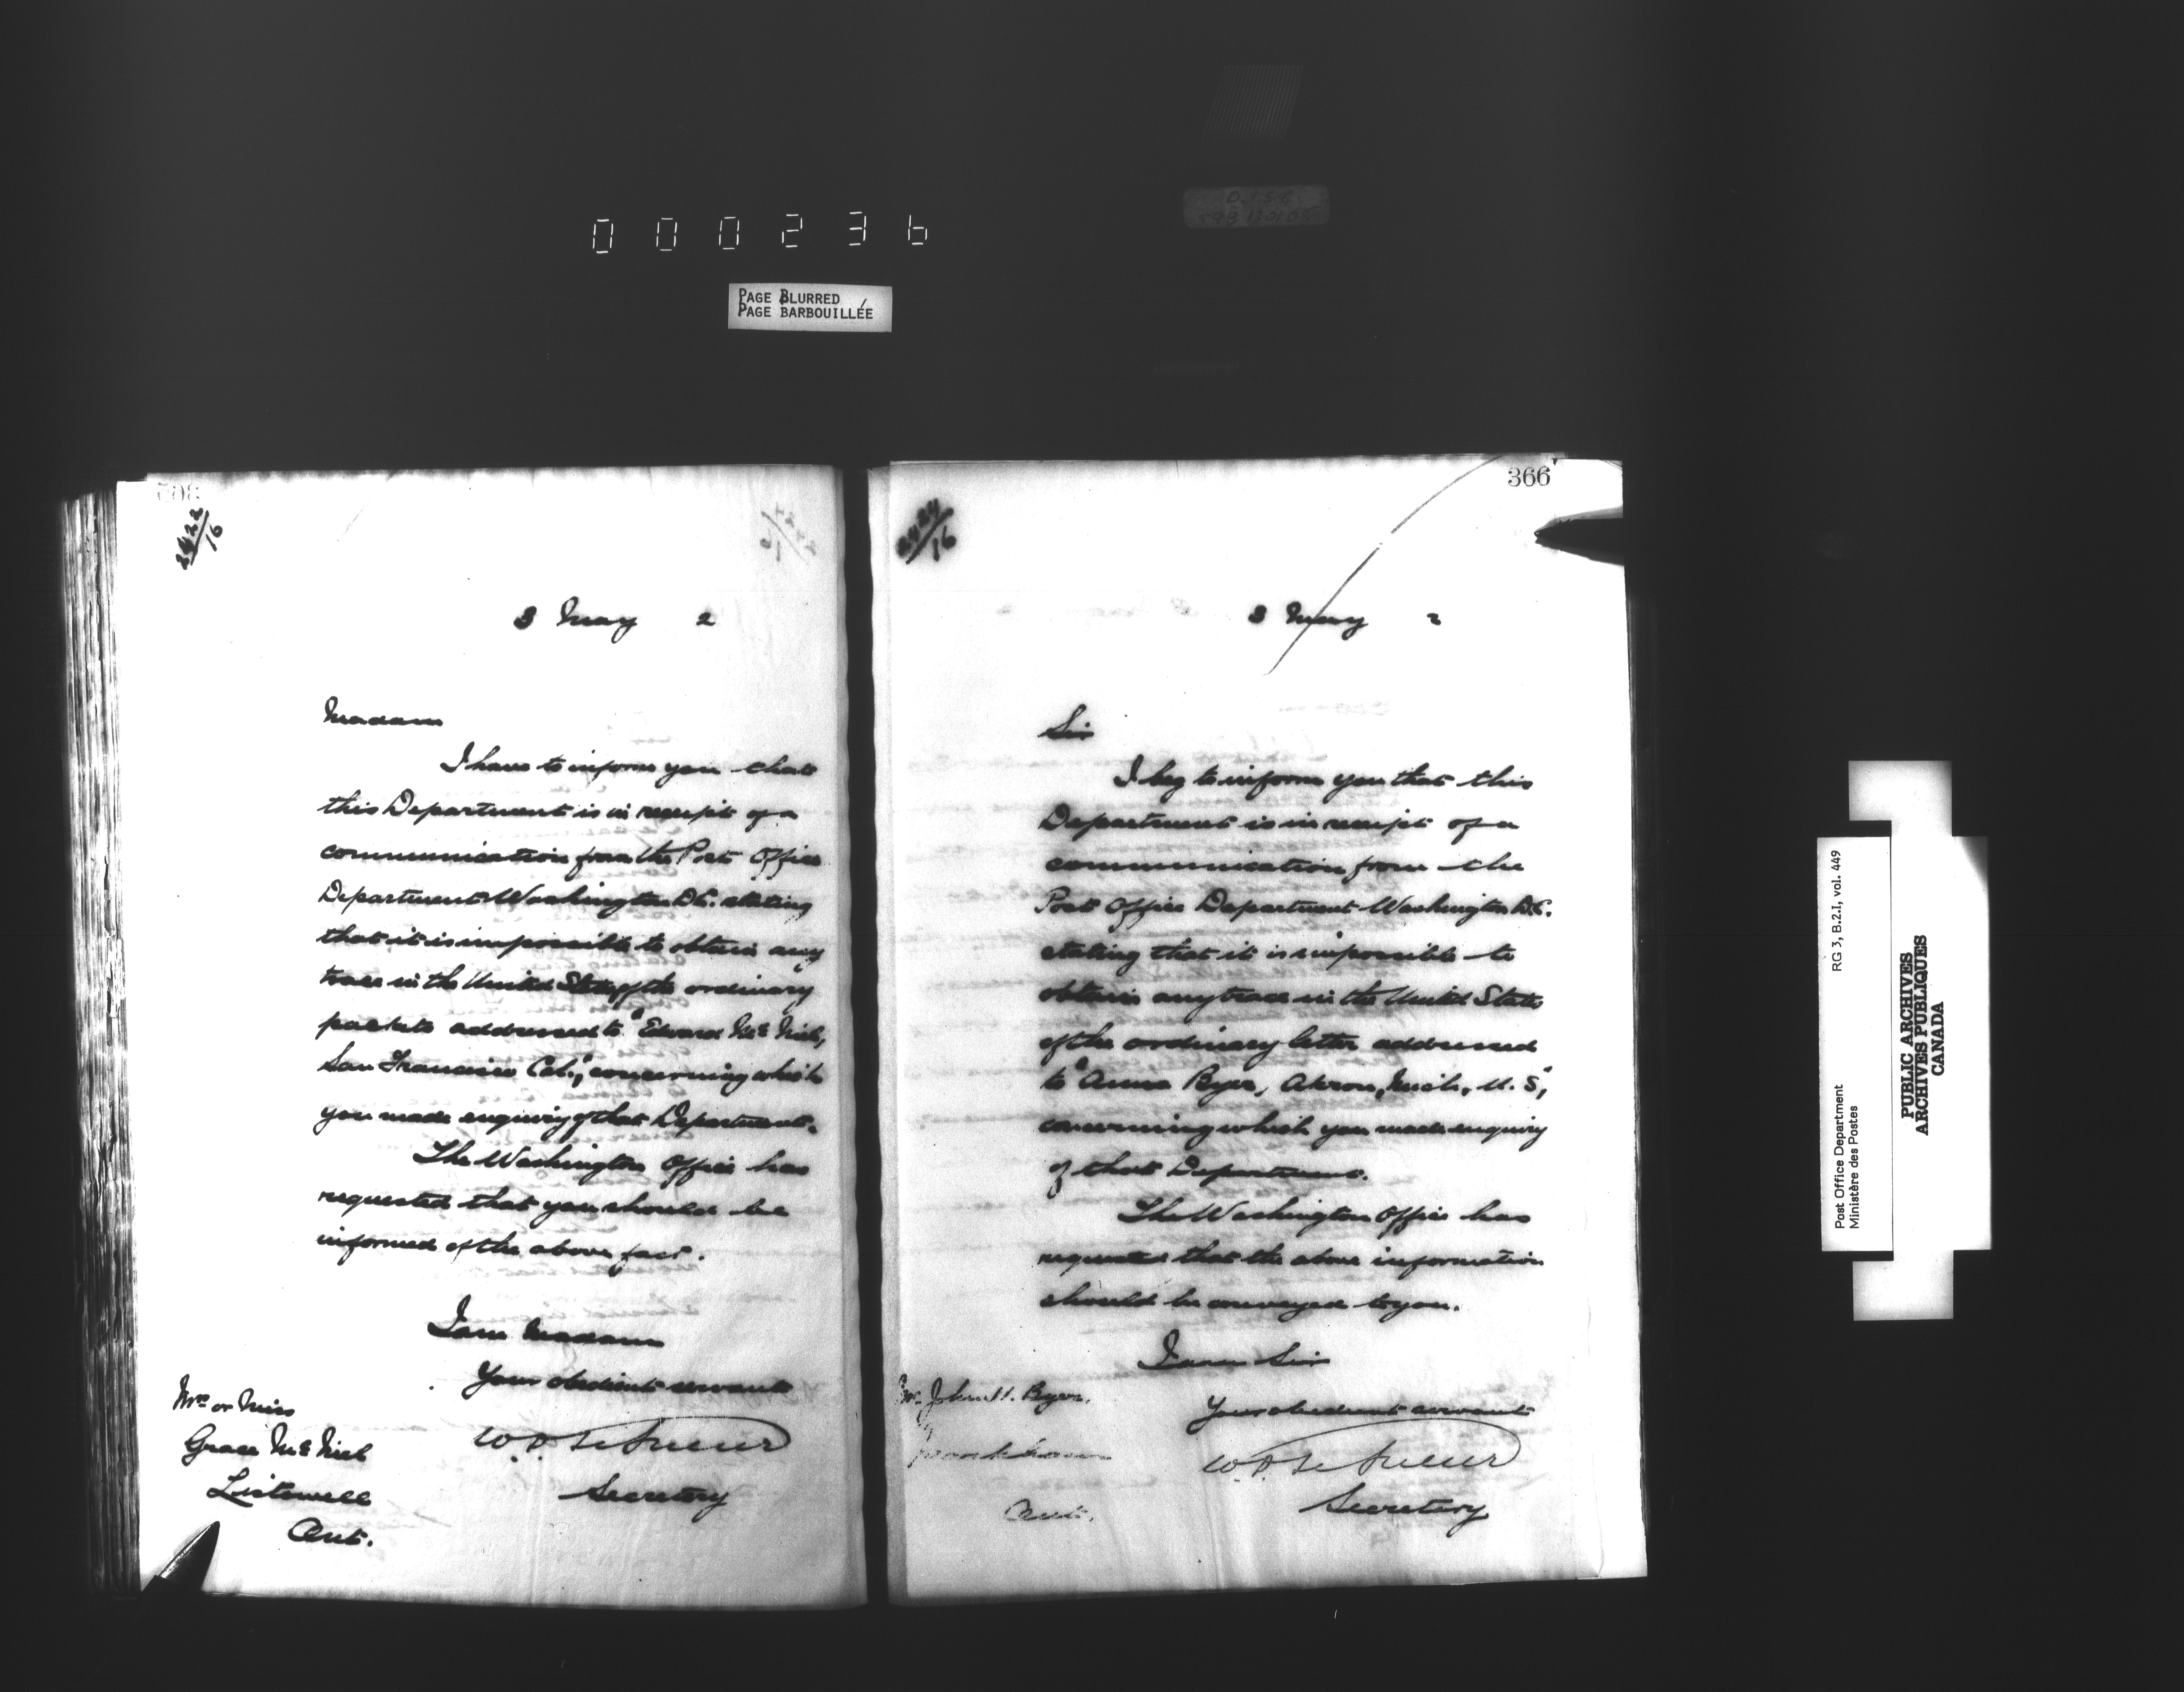 000236
PAGE BLURRED
PAGE BARBOUILLÉE
2422/16
3 May 2
Madam
I have to inform you that
this Department is in receipt of a
communication from the Post Office
Department Washington D.C. stating
that it is impossible to obtain any
trace in the United States of the ordinary
packets addressed to "Edward McNich,
San Francisco Cal.", concerning which
you made enquiry of that Department.
The Washington Office has
requested that you should be
informed of the above fact.
I am Madam
Your obedient servant
Secretary
Mrs or Miss
Grace McNich
Listowell
Ont.
366
2424/16
3 May 2
Sir
I beg to inform you that this
Department is in receipt of a
communication from the
Post Office Department Washington D.C.
stating that it is impossible to
obtain any trace in the United States
of the ordinary letter addressed
to "Anna Byer, Akron, Mich, U.S.",
concerning which you made enquiry
of that Department.
The Washington Office has
requested that the above information
should be conveyed to you.
I am Sir
Your obedient servant
Secretary
Mr. John H. Byer,
Ont.
Post Office Department RG 3, B.2.I, vol. 449
Ministère des Postes
PUBLIC ARCHIVES
ARCHIVES PUBLIQUES
CANADA